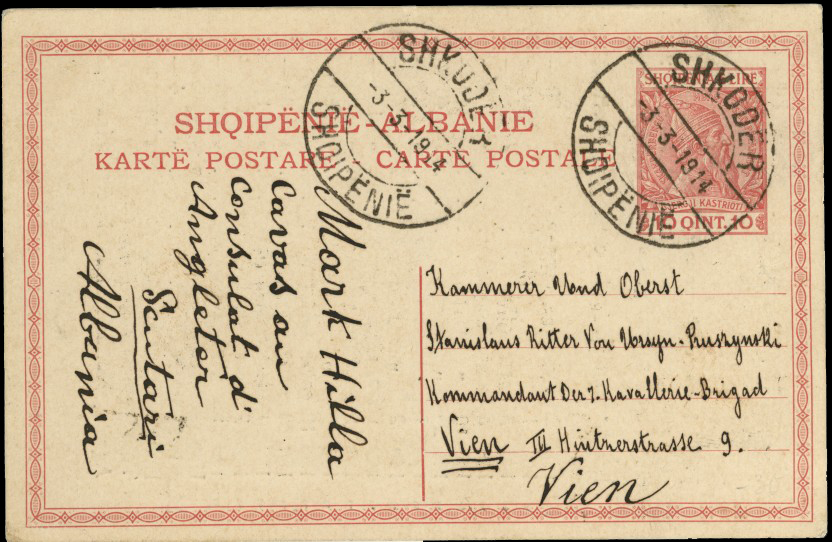 SHQIPËNIË - ALBANIE
KARTË POSTARE - CARTE POSTALE
SHKODËR
-3-3-1914
SHQIPËNIË
SHKODËR
-3-3-1914
SHQIPËNIË
KASTRIOTI
10 QINT. 10
Mark Hilla
Cavas au
Consulat d'
Angleter
Scutari
Albania
Kammerer Und Oberst
Stanislaus Ritter Von Ursyn-Pruszynski
Kommandant Der 7. Kavallerie-Brigad
Vien III Hintzerstrasse 9.
Vien